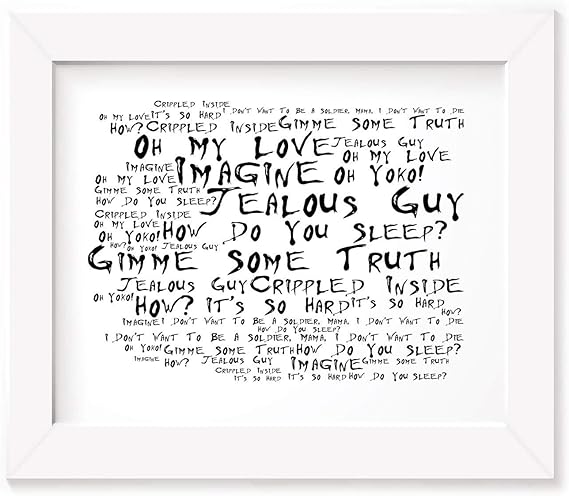 Crippled Inside
Oh My Love It's So Hard I Don't Want To Be A Soldier, Mama, I Don't Want To Die
How? Crippled Inside Gimme Some Truth
Oh My Love Jealous Guy
Oh My Love
Imagine Imagine Oh Yoko!
Oh My Love
Gimme Some Truth Jealous Guy
How Do You Sleep?
Crippled Inside
Oh My Love How Do You Sleep?
Oh Yoko!
How? Oh Yoko! Jealous Guy
Gimme Some Truth
Jealous Guy Crippled Inside
Oh Yoko! How? It's So Hard It's So Hard
How?
Imagine I Don't Want To Be A Soldier, Mama, I Don't Want To Die
How Do You Sleep?
I Don't Want To Be A Soldier, Mama, I Don't Want To Die
Oh Yoko! Gimme Some Truth How Do You Sleep?
Imagine How? Jealous Guy Imagine Gimme Some Truth
Crippled Inside
It's So Hard How Do You Sleep?